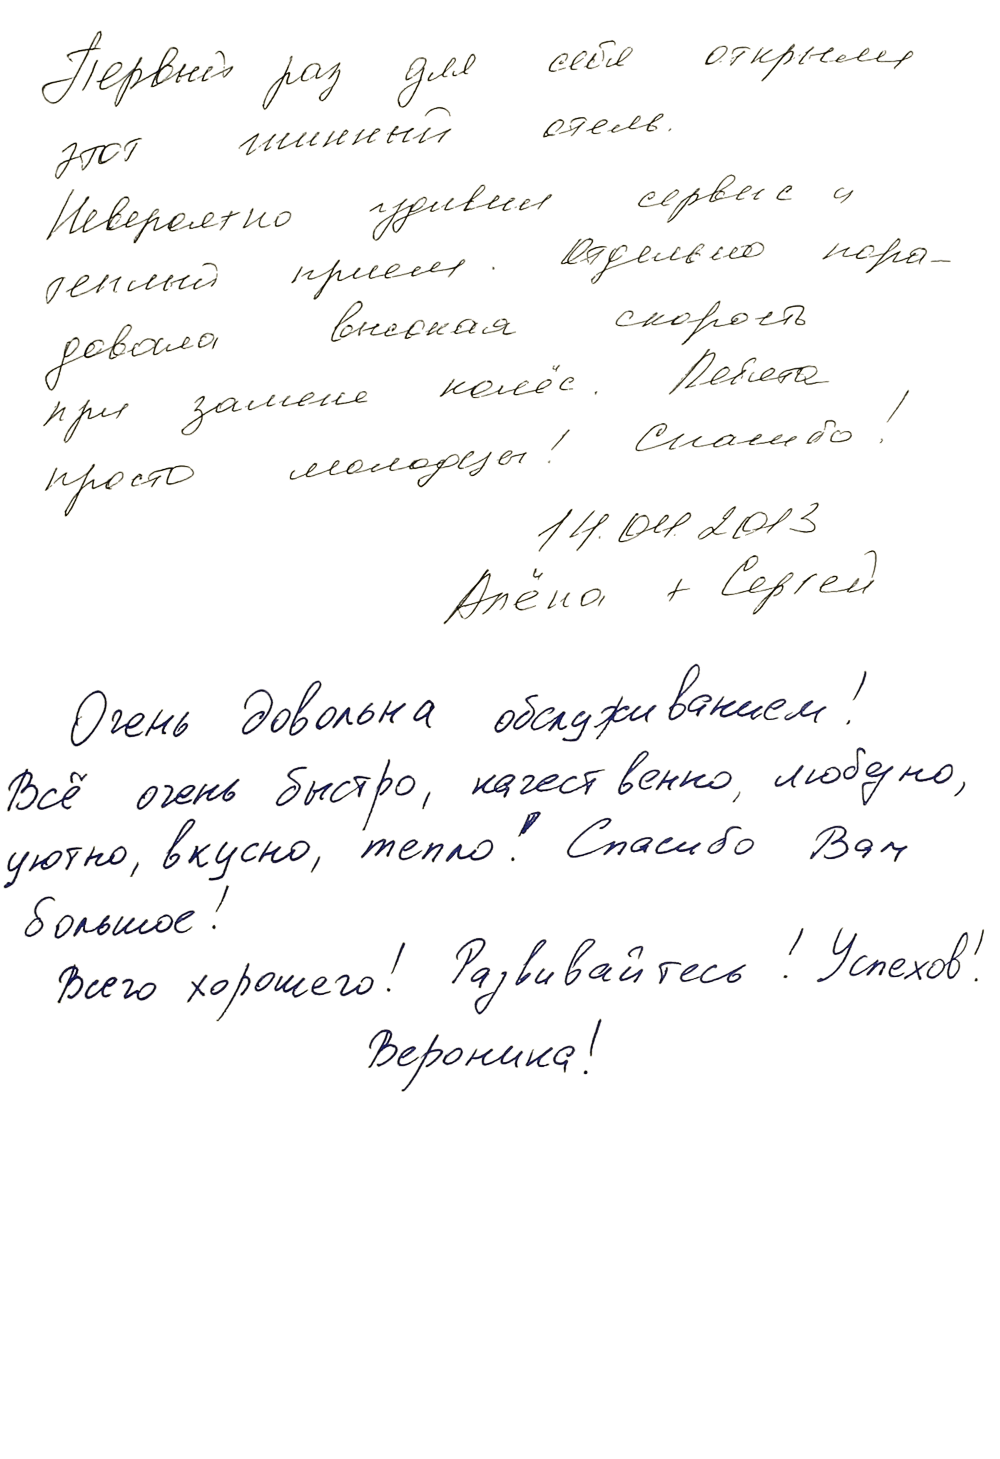 Первый раз для себя открыли
этот шинный отель.
Невероятно удивил сервис и
теплый прием. Отдельно пора-
довала высокая скорость
при замене колёс. Ребята
просто молодцы! Спасибо!
14.04.2013
Алёна + Сергей
Очень довольна обслуживанием!
Всё очень быстро, качественно, любезно,
уютно, вкусно, тепло! Спасибо Вам
большое!
Всего хорошего! Развивайтесь! Успехов!
Вероника!